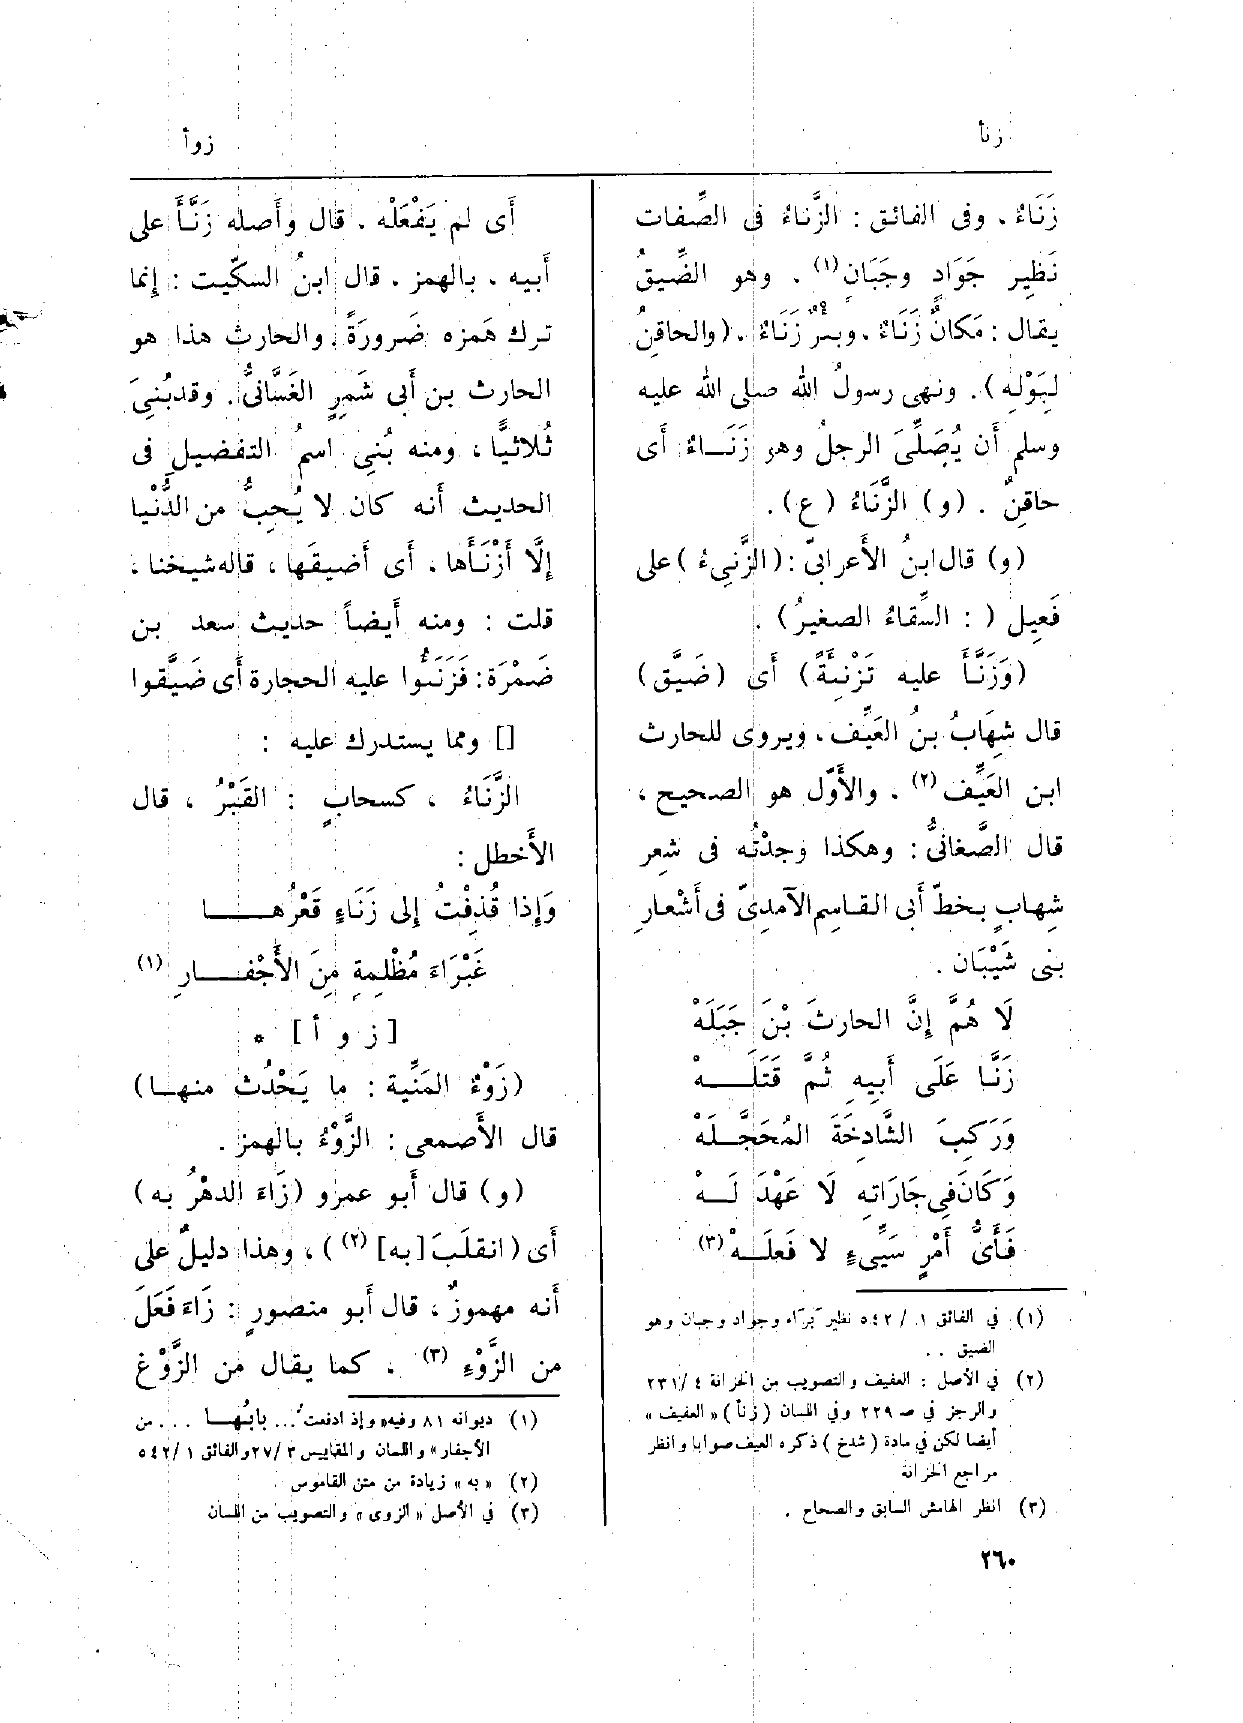 زنأ
زوأ
زَنَاءٌ . وفى الفائق : الزَّناءُ فى الصِّفات
نَظِير جَوَادٍ وجَبَانٍ (١) . وهو الضَّيِّقُ
يقال : مَكانٌ زَنَاءٌ ، وبِئرٌ زَنَاءٌ . (والحاقِنُ
لِبَوْلِهِ) . ونهى رسولُ الله صلى الله عليه
وسلم أن يُصَلِّىَ الرجلُ وهو زَنَــاءٌ أى
حاقِنٌ . (و) الزَّنَاءُ (ع) .
(و) قال ابنُ الأَعرابىّ : (الزَّنِىءُ) على
فَعِيلٍ ( : السِّقاءُ الصغيرُ) .
(وَزَنَّأَ عليه تَزْنِئَةً) أى (ضَيَّق)
قال شِهَابُ بنُ العَيِّف ، ويروى للحارث
ابن العَيِّف (٢) . والأَوّل هو الصحيح ،
قال الصَّغانىُّ : وهكذا وجدْتُه فى شعر
شِهابٍ بخطّ أبى القاسِم الآمدِىّ فى أَشْعار
بنى شَيْبَان .
لَا هُمَّ إِنَّ الحارثَ بْنَ جَبَلَهْ
زَنَّا عَلَى أَبِيهِ ثُمَّ قَتَلَــهْ
وَرَكِبَ الشَّادِخَةَ المُحَجَّلَهْ
وَكَانَ فِى جَارَاتِهِ لَا عَهْدَ لَــهْ
فَأَىُّ أَمْرٍ سَيِّىءٍ لا فَعلَــهْ (٣)
(١) فى الفائق ١ / ٥٤٢ نظير بَرَاء وجواد وجبان وهو
الضيق . .
(٢) فى الأصل : العفيف والتصويب من الخزانة ٤ / ٢٣١
والرجز فى صـ ٢٢٩ وفى اللسان (زنأ) « العفيف »
أيضا لكن فى مادة (شدخ) ذكره العيف صوابا وانظر
مراجع الخزانة
(٣) انظر الهامش السابق والصحاح .
أى لم يَفْعَلْه . قال وأَصله زَنَّأَ على
أَبيه ، بالهمز . قال ابنُ السكِّيت : إنما
ترك هَمزه ضَرورَةً . والحارث هذا هو
الحارث بن أَبى شَمِرٍ الغَسَّانىُّ . وقد بُنِىَ
ثُلاثيًّا ، ومنه بُنِى اسمُ التفضيلِ فى
الحديث أنه كان لا يُحِبُّ من الدُّنْيا
إِلَّا أَزْنَأَها ، أى أَضيقَها ، قاله شيخنا ،
قلت : ومنه أيضاً حديث سعد بن
ضَمْرَة : فَزَنَئُوا عليه الحجارة أى ضَيَّقوا
[] ومما يستدرك عليه :
الزَّنَاءُ ، كسحابٍ : القَبْرُ ، قال
الأَخطل :
وَإِذا قُذِفْتُ إِلى زَنَاءٍ قَعْرُهــا
غَبْرَاءَ مُظْلِمةٍ مِنَ الأَجْفــارِ (١)
[ ز و أ ] *
(زَوْءُ المَنِيَّة : ما يَحْدُث منهــا)
قال الأَصمعى : الزَّوْءُ بالهمز .
(و) قال أَبو عمرو (زَاءَ الدهْرُ به)
أى (انقلَبَ [به] (٢) ) ، وهذا دليلٌ على
أَنه مهموزٌ ، قال أَبو منصورٍ : زَاءَ فَعَلَ
من الزَّوْءِ (٣) ، كما يقال من الزَّوْغ
(١) ديوانه ٨١ وفيه « وإذ ادفعت ... بابُهــا ... من
الأجفار » واللسان والمقاييس ٣ / ٢٧ والفائق ١ / ٥٤٢
(٢) « به » زيادة من متن القاموس
(٣) فى الأصل « الزوى » والتصويب من اللسان
٢٦٠